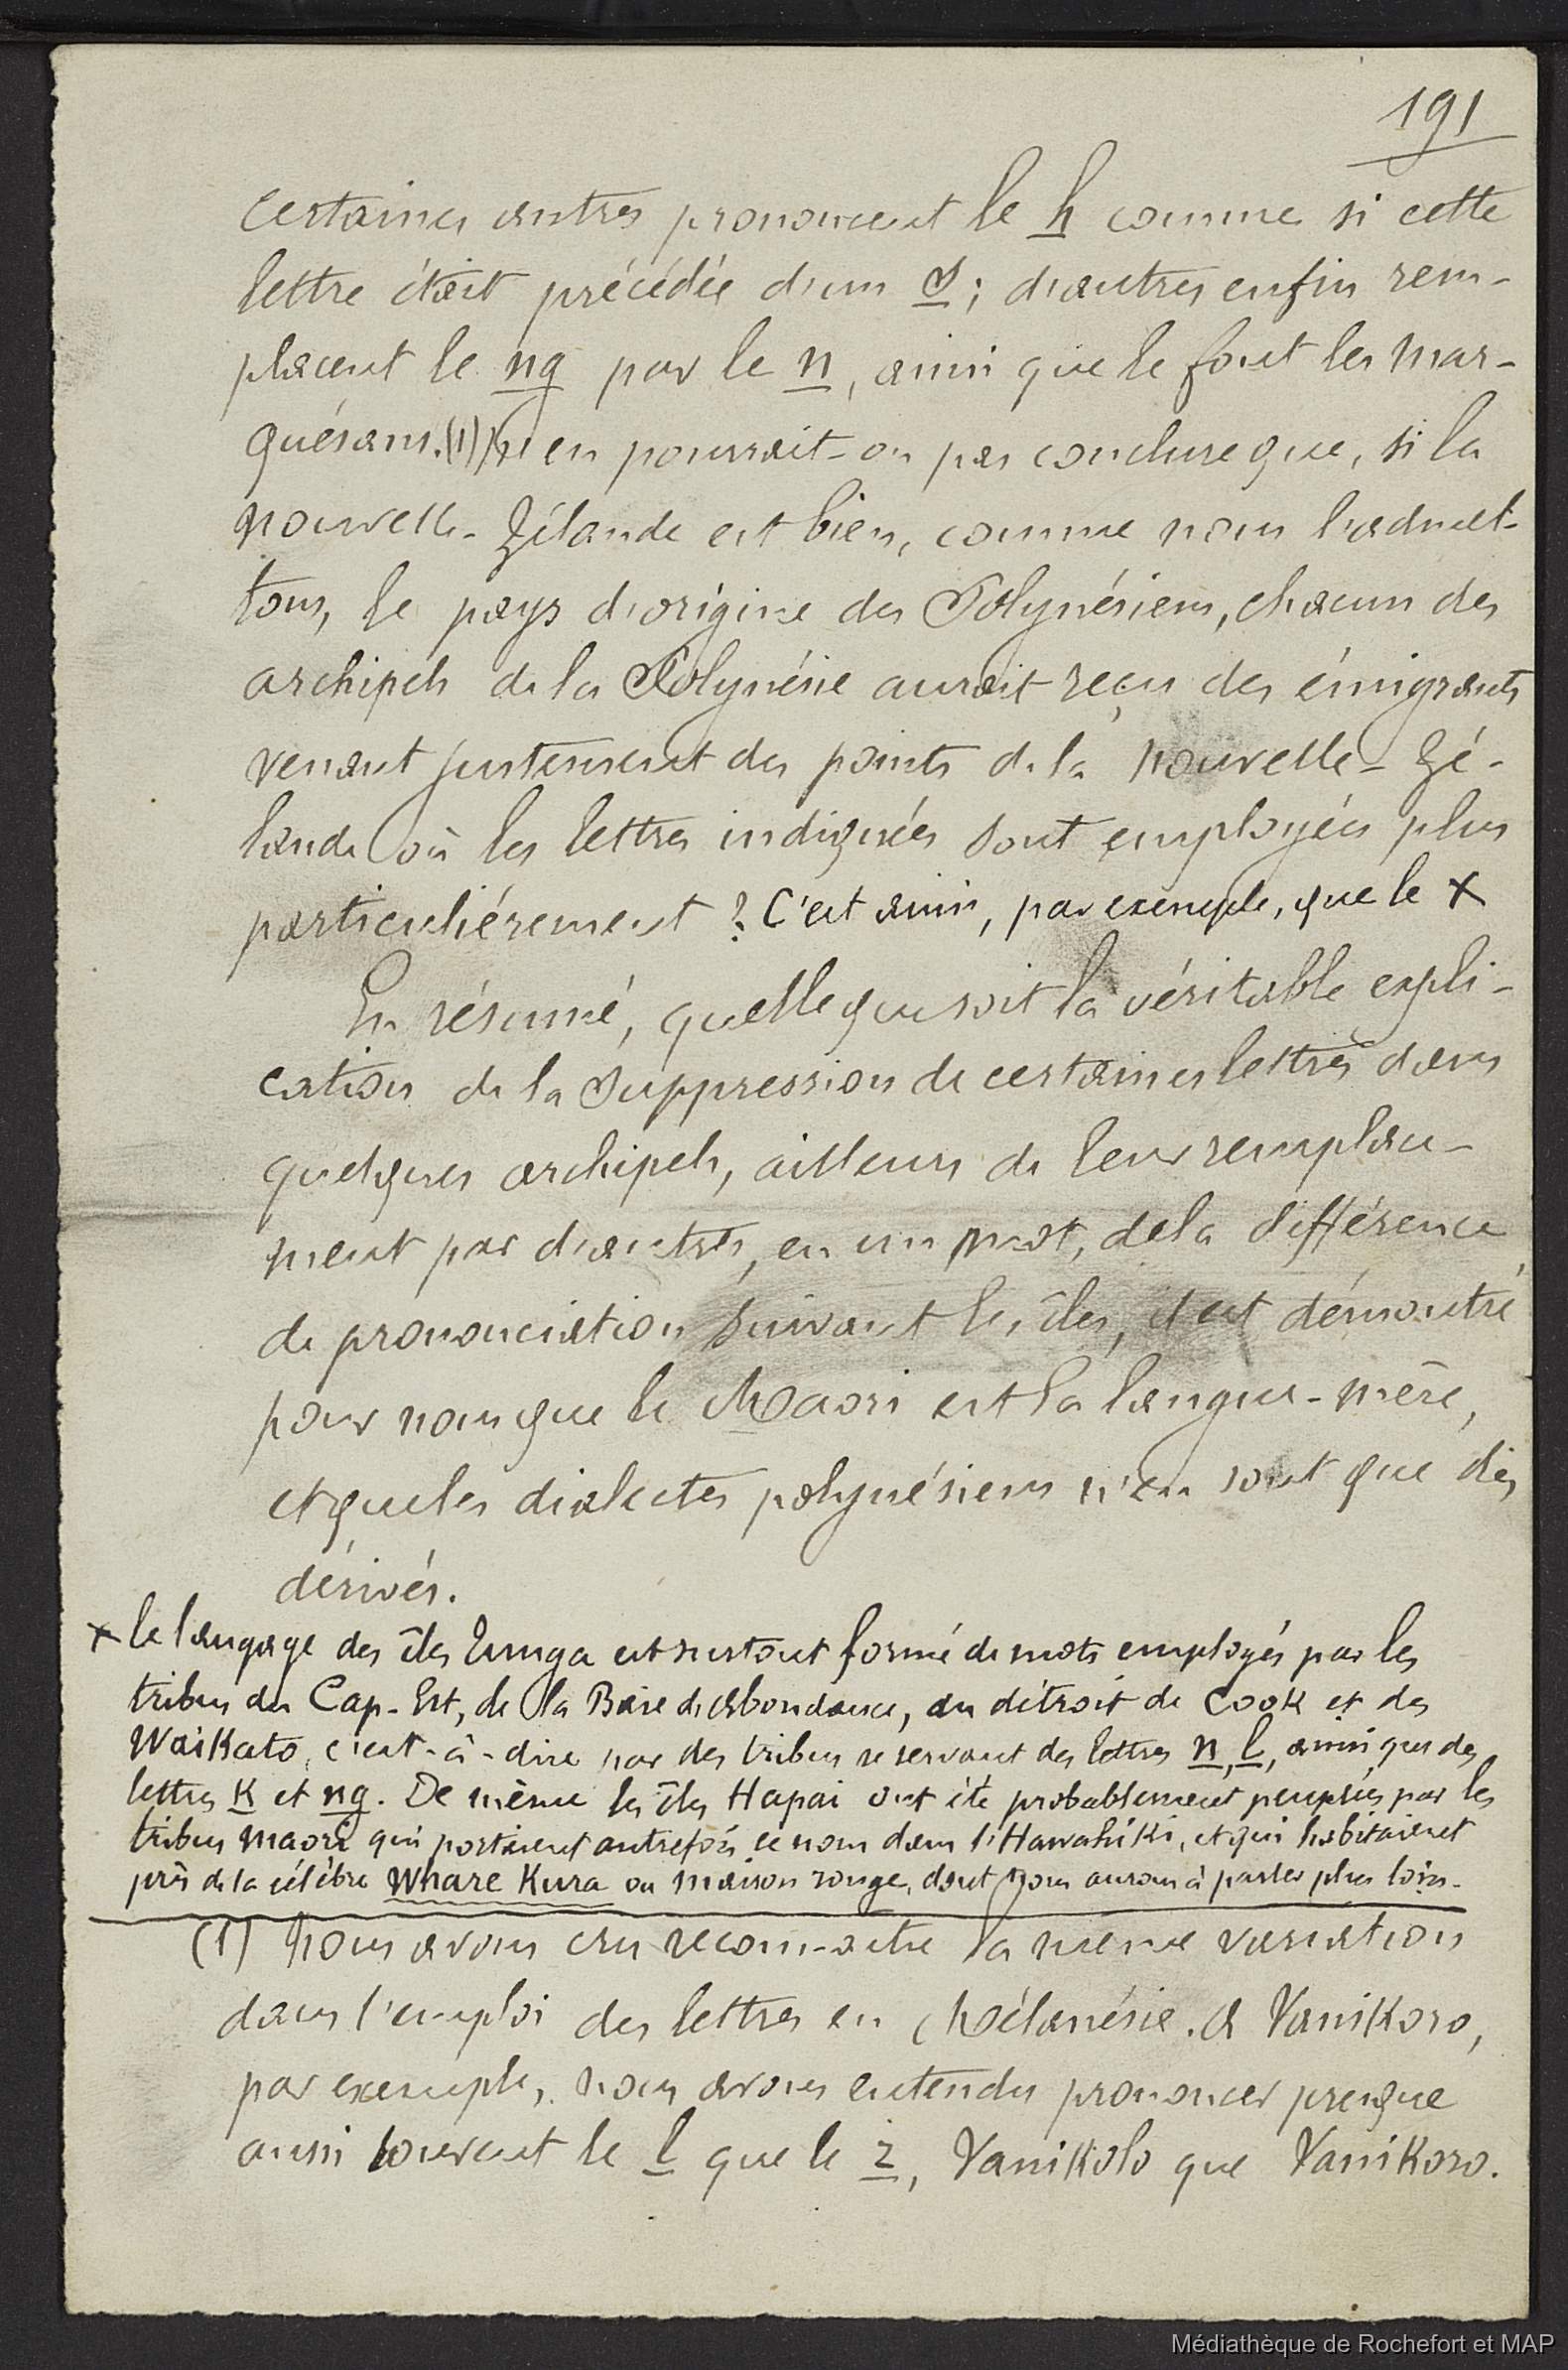 191
certaines autres prononcent le h comme si cette
lettre était précédée d'un s; d'autres enfin rem-
placent le ng par le n, ainsi que le font les Mar-
quésans.(1) N'en pourrait-on pas conclure que, si la
Nouvelle-Zélande est bien, comme nous l'admet-
tons, le pays d'origine des Polynésiens, chacun des
archipels de la Polynésie aurait reçu des émigrants
venant justement des points de la Nouvelle-Zé-
lande où les lettres indiquées sont employées plus
particulièrement? C'est ainsi, par exemple, que le x
En résumé, quelle que soit la véritable expli-
cation de la suppression de certaines lettres dans
quelques archipels, ailleurs de leur remplace-
ment par d'autres, en un mot, de la différence
de prononciation suivant les îles, il est démontré
pour nous que le Maori est la langue-mère,
et que les dialectes polynésiens n'en sont que des
dérivés.
x le langage des îles Tunga est surtout formé de mots employés par les
tribus du Cap-Est, de la Baie d'abondance, du détroit de Cook et des
Waikato, c'est-à-dire par des tribus se servant des lettres n, l, ainsi que des
lettres k et ng. De même les îles Hapai ont été probablement peuplées par les
tribus maori qui portaient autrefois ce nom dans l'Hawahiki, et qui habitaient
près de la célèbre Whare Kura ou maison rouge, dont nous aurons à parler plus loin.
(1) Nous avons cru reconnaître la même variation
dans l'emploi des lettres en Mélanésie. A Vanikoro,
par exemple, nous avons entendu prononcer presque
aussi souvent le l que le r, Vanikolo que Vanikoro.
Médiathèque de Rochefort et MAP